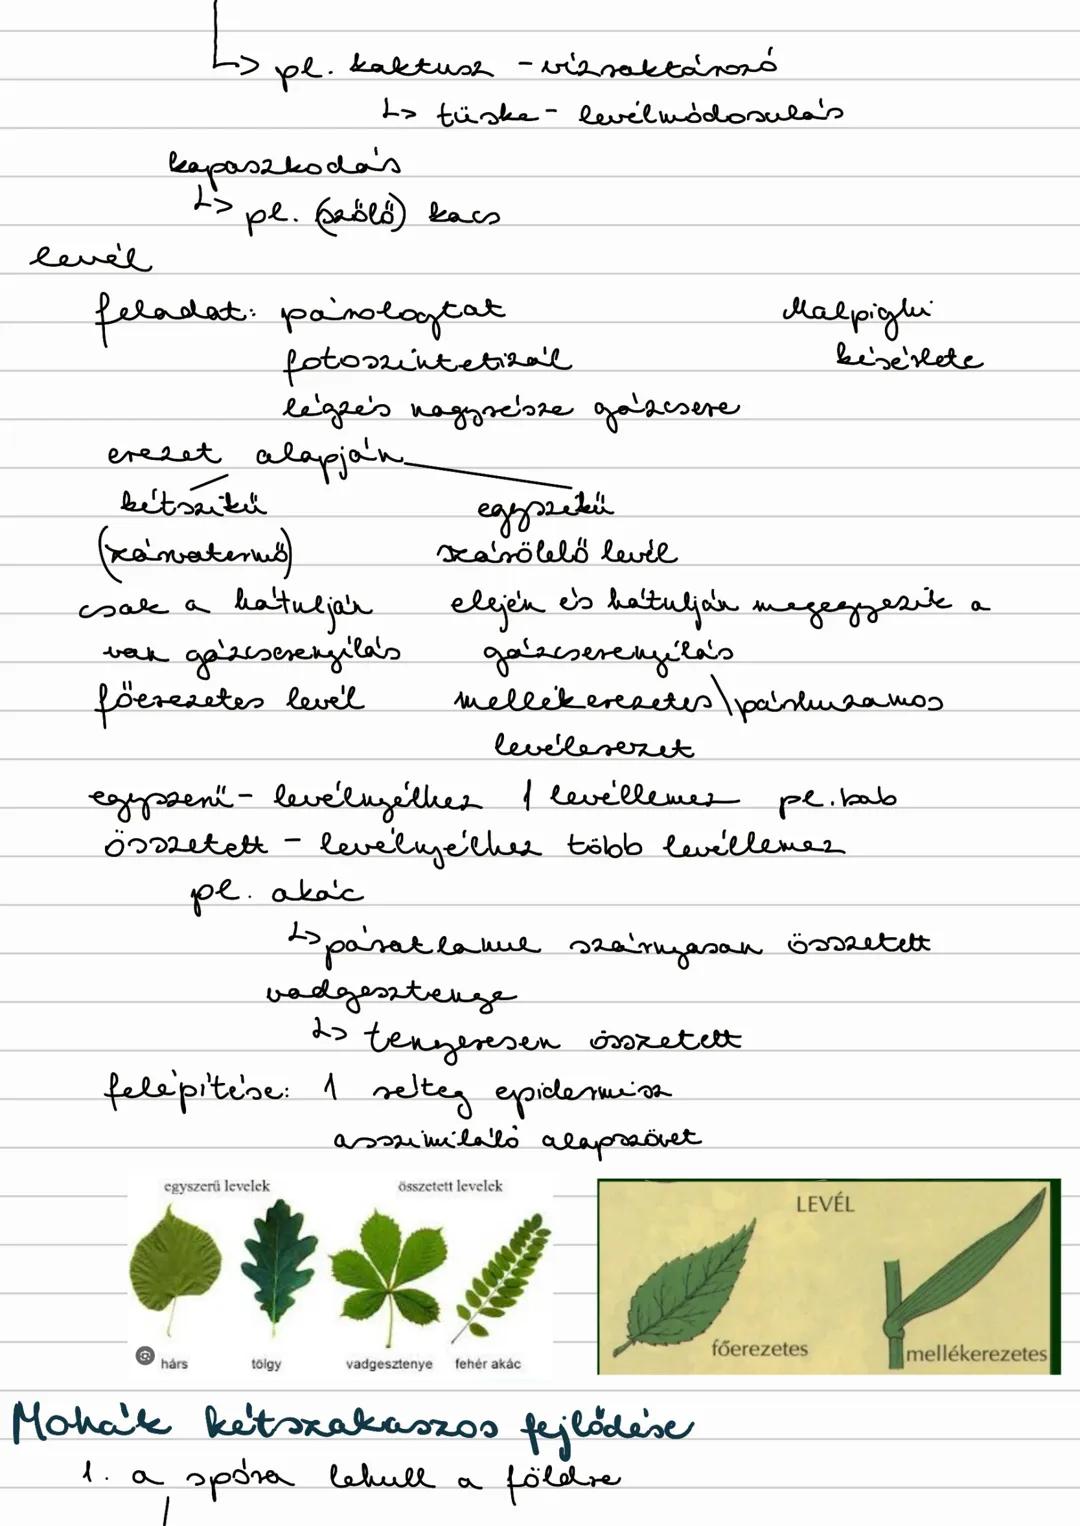 ↳ pl. kaktusz - vízraktározó
↳ tüske - levélmódosulás
kapaszkodás
↳ pl. (szőlő) kacs
levél
feladat: párologtat
Malpighi
fotoszintetizál
kísérlete
légzés nagyrésze gázcsere
erezet alapján
kétszikű egyszikű
(zárvatermő) szárölelő levél
csak a hátulján elején és hátulján megegyezik a
van gázcserenyílás gázcserenyílás
főerezetes levél mellékerezetes\párhuzamos
levélerezet
egyszerű - levélnyélhez 1 levéllemez pl. bab
összetett - levélnyélhez több levéllemez
pl. akác
↳ páratlanul szárnyasan összetett
vadgesztenye
↳ tenyeresen összetett
felépítése: 1 réteg epidermisz
asszimiláló alapszövet
egyszerű levelek összetett levelek
hárs tölgy vadgesztenye fehér akác
LEVÉL
főerezetes mellékerezetes
Mohák kétszakaszos fejlődése
1. a spóra lehull a földre